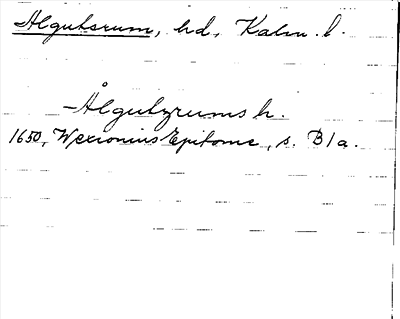 Algutsrum, hd, Kalm. l.
— Ålgutzrums h.
1650, Wexionius Epitome, s. B1a.